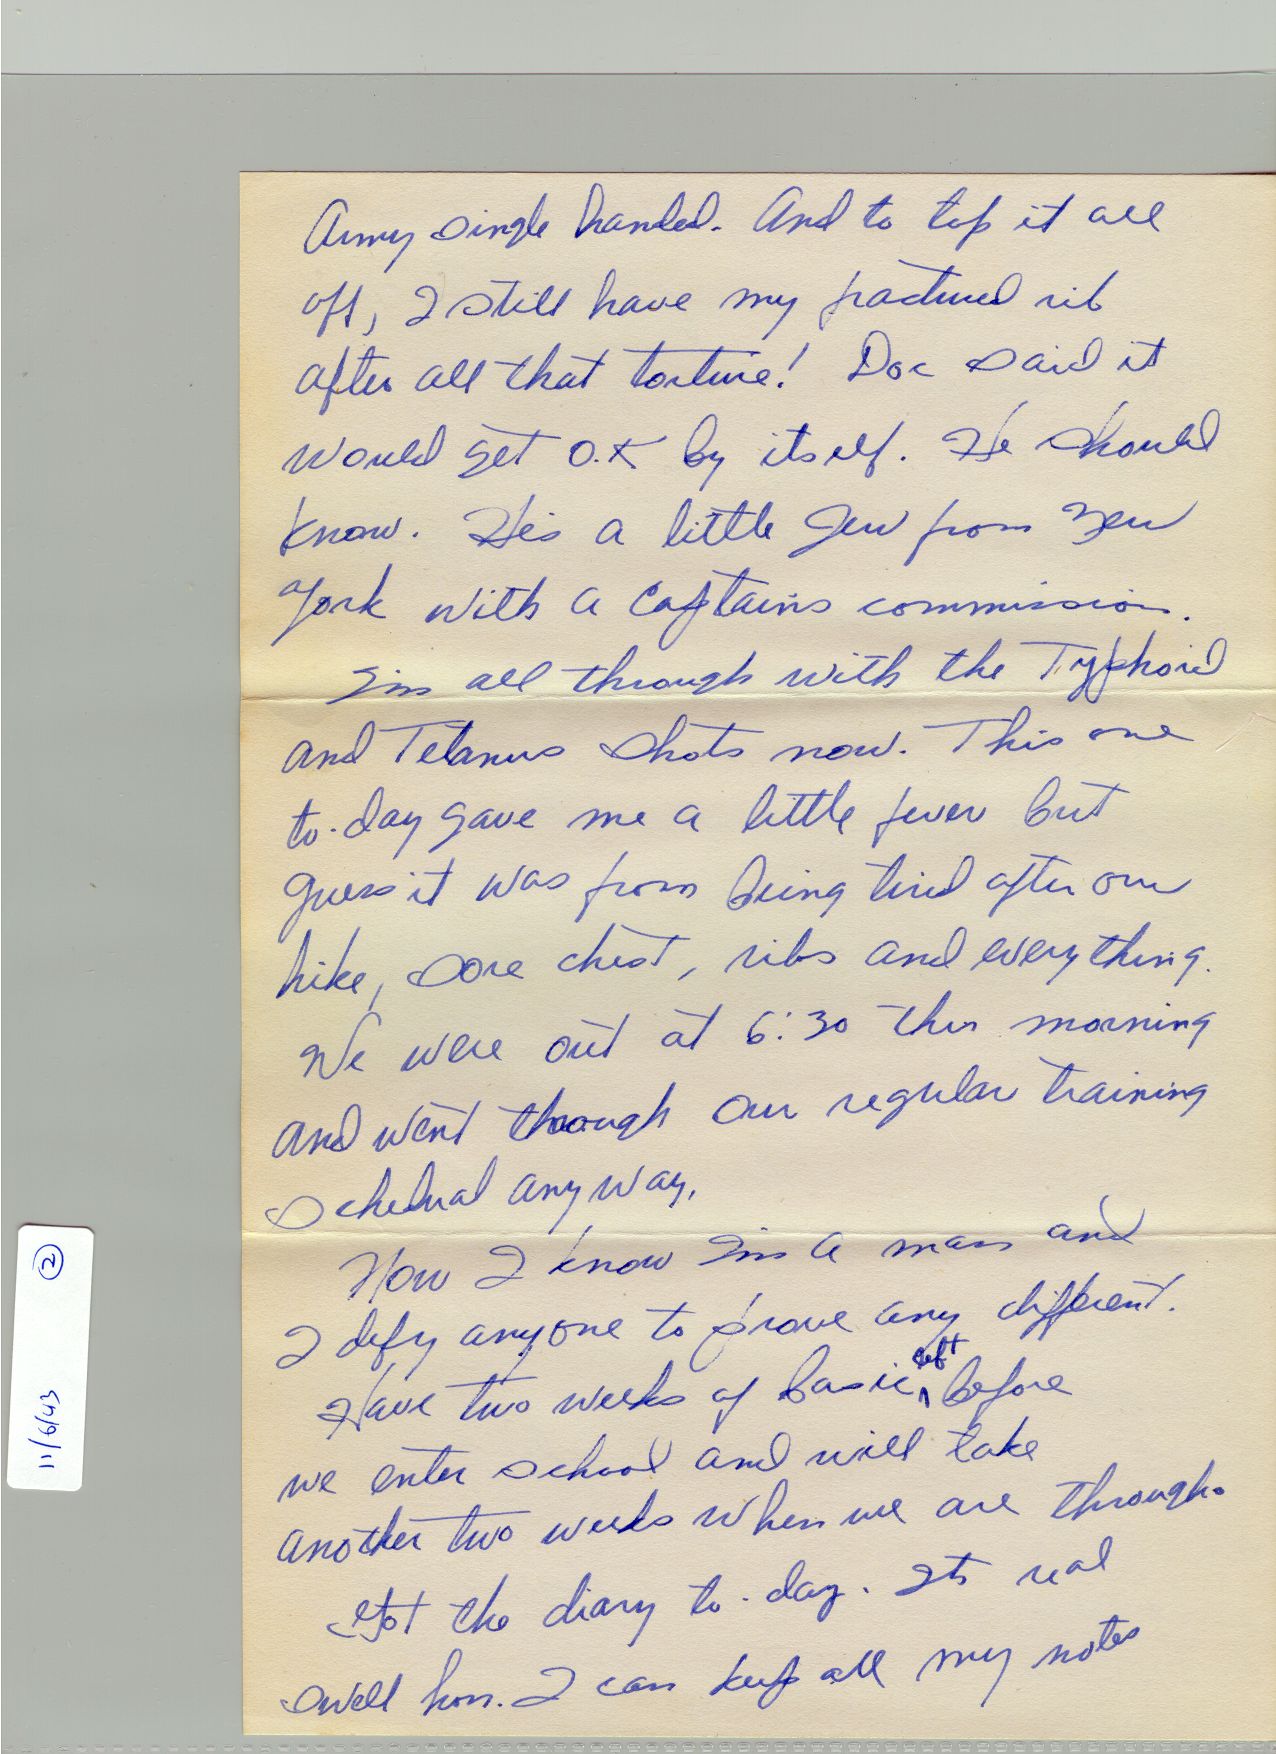 Army single handed. And to top it all
off, I still have my fractured rib
after all that torture! Doc said it
would get O.K by itself. He should
know. He's a little Jew from New
York with a Captains commission.
I'm all through with the Typhoid
and Tetanus shots now. This one
to-day gave me a little fever but
guess it was from being tired after our
hike, sore chest, ribs and everything.
We were out at 6:30 this morning
and went through our regular training
schedual anyway.
Now I know I'm a man and
I defy anyone to prove any different.
Have two weeks of basic left before
we enter school and will take
another two weeks when we are through.
Got the diary to-day. Its real
swell hon. I can keep all my notes
11/6/43 2